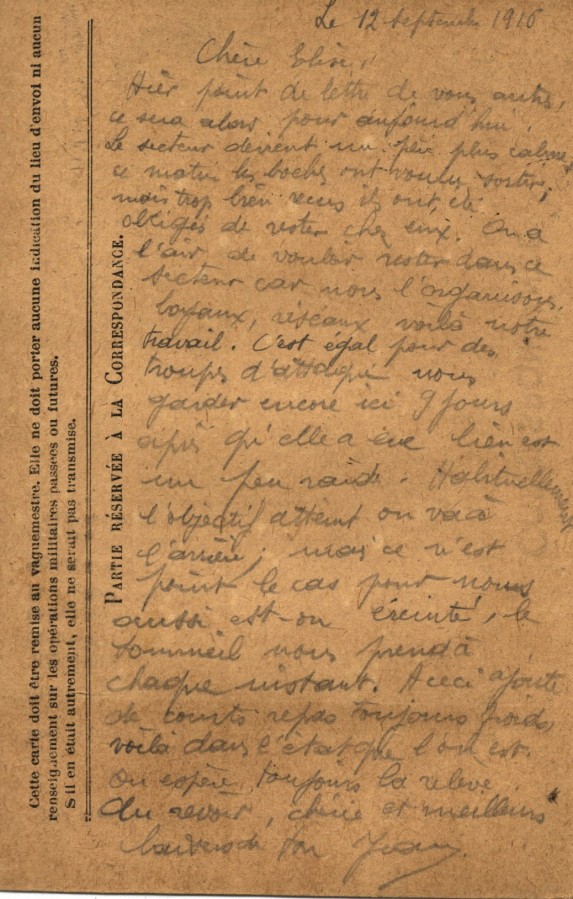 Le 12 Septembre 1916
Chère Elise,
Hier point de lettre de vous autres,
ce sera alors pour aujourd'hui.
Le secteur devient un peu plus calme,
ce matin les boches ont voulu sortir,
mais trop bien reçus ils ont été
obligés de rester chez eux. On a
l'air de vouloir rester dans ce
secteur car nous l'organisons.
boyaux, réseaux voilà notre
travail. C'est égal pour des
troupes d'attaque nous
garder encore ici 9 jours
après qu'elle a eue lieu est
un peu raide. Habituellement
l'objectif atteint on va à
l'arrière; mais ce n'est
point le cas pour nous
aussi est-on éreinté, le
sommeil nous prend à
chaque instant. A ceci ajoute
de courts repas toujours froids,
voilà dans l'état que l'on est.
On espère toujours la relève.
Au revoir, chérie et meilleurs
baisers de ton Jean
PARTIE RÉSERVÉE À LA CORRESPONDANCE.
Cette carte doit être remise au vaguemestre. Elle ne doit porter aucune indication du lieu d'envoi ni aucun
renseignement sur les opérations militaires passées ou futures.
S'il en était autrement, elle ne serait pas transmise.